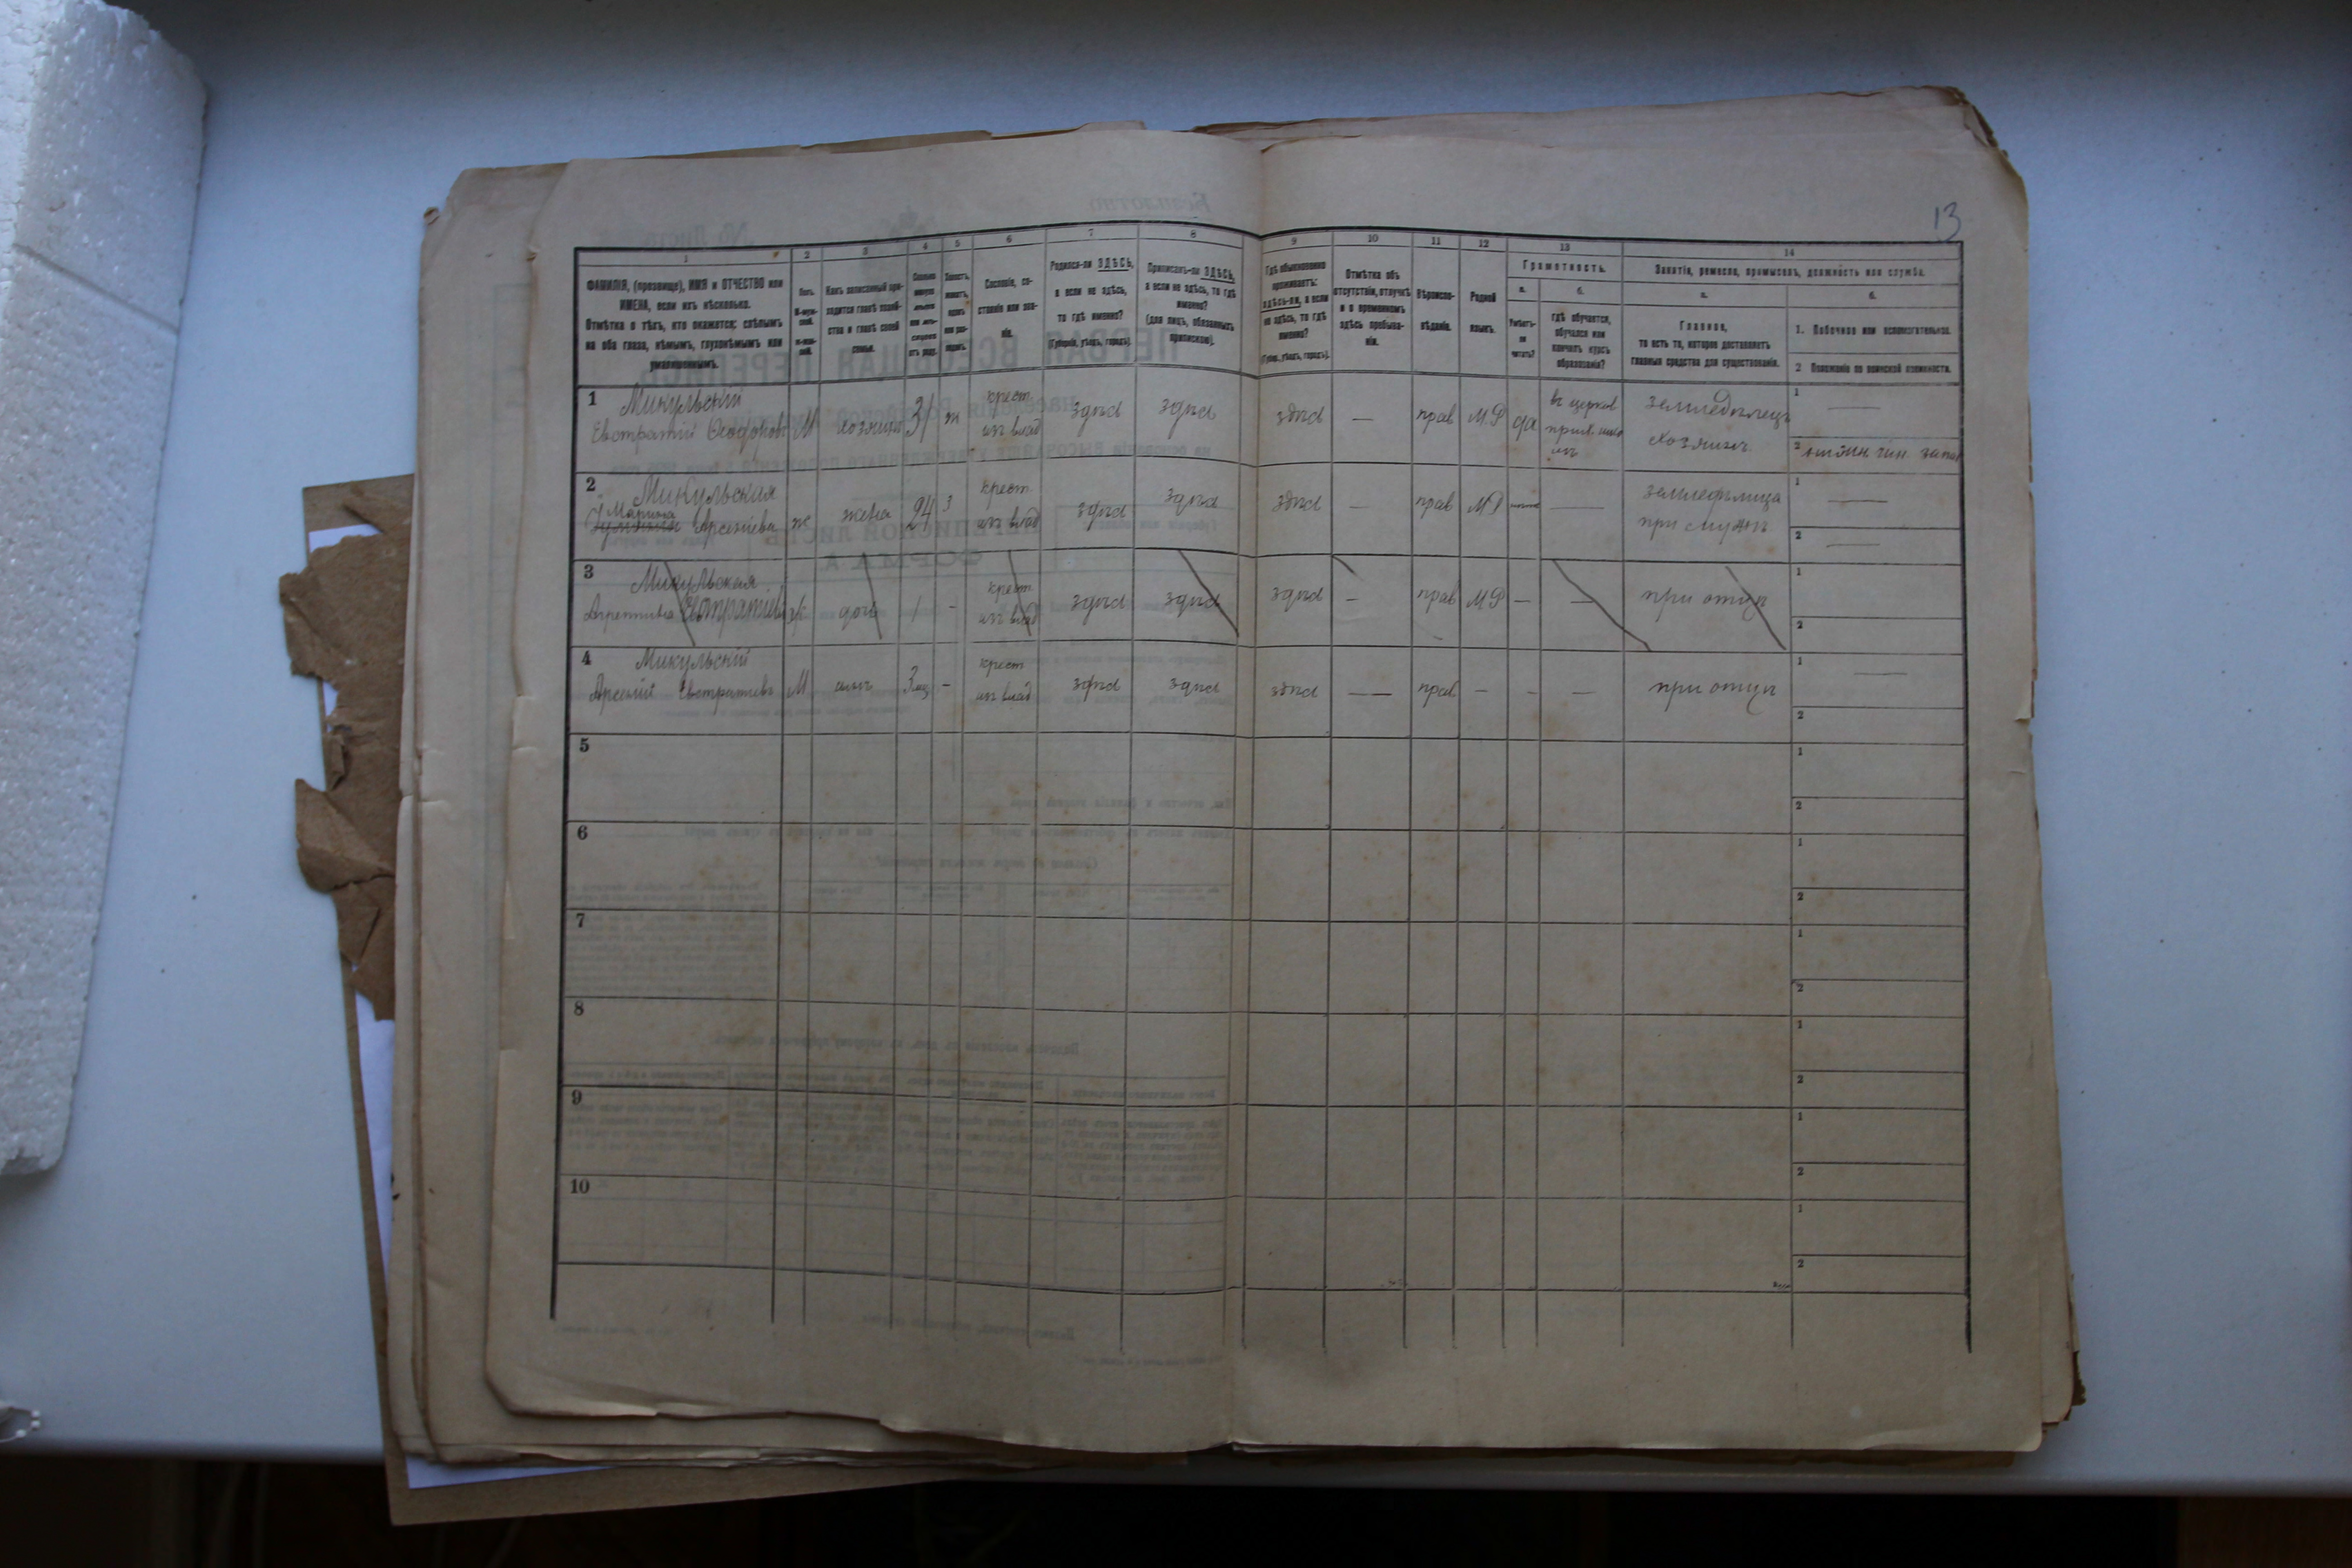 13
1 2 3 4 5 6 7 8 9 10 11 12 13 14
ФАМИЛІЯ, (прозвище), ИМЯ и ОТЧЕСТВО или
ИМЕНА, если ихъ нѣсколько.
Отмѣтка о тѣхъ, кто окажется: слѣпымъ
на оба глаза, нѣмымъ, глухонѣмымъ или
умалишеннымъ.
Полъ.
М-муж-
ской.
Ж-жен-
скій.
Какъ записанный при-
ходится главѣ хозяй-
ства и главѣ своей
семьи.
Сколько
минуло
лѣтъ
или мѣ-
сяцевъ
отъ роду.
Холостъ,
женатъ,
вдовъ
или раз-
веденъ.
Сословіе, со-
стояніе или зва-
ніе.
Родился-ли ЗДѢСЬ,
а если не здѣсь,
то гдѣ именно?
(Губернія, уѣздъ, городъ).
Приписанъ-ли ЗДѢСЬ,
а если не здѣсь, то гдѣ
именно?
(для лицъ, обязанныхъ
припискою).
Гдѣ обыкновенно
проживаетъ:
здѣсь-ли, а если
не здѣсь, то гдѣ
именно?
(Губерн., уѣздъ, городъ).
Отмѣтка объ
отсутствіи, отлучкѣ
и о временномъ
здѣсь пребыва-
ніи.
Вѣроиспо-
вѣданіе.
Родной
языкъ.
Грамотность.
а.
Умѣетъ-
ли
читать?
б.
гдѣ обучается,
обучался или
кончилъ курсъ
образованія?
Занятіе, ремесло, промыселъ, должность или служба.
а.
Главное,
то есть то, которое доставляетъ
главныя средства для существованія.
б.
1. Побочное или вспомогательное.
2 Положеніе по воинской повинности.
1 Микульскій
Евстратій М хозяинъ 31 ж крест. изъ влад здѣсь здѣсь здѣсь — прав М.Р да въ церков прих. земледѣлецъ хозяинъ 1 — 2
2 Микульская
Марина Арсеніева ж жена 24 з крест изъ влад здѣсь здѣсь здѣсь — прав МР — земледѣлица при мужѣ 1 — 2 —
3 Микульская
Агрепина Евстратіева ж дочь 1 - крест изъ влад здѣсь здѣсь здѣсь — прав МР — — при отцѣ 1 2
4 Микульскій
Арсеній Евстратіевъ М сынъ 3 мц - крест изъ влад здѣсь здѣсь здѣсь — прав - - — при отцѣ 1 — 2
5 1 2
6 1 2
7 1 2
8 1 2
9 1 2
10 1 2